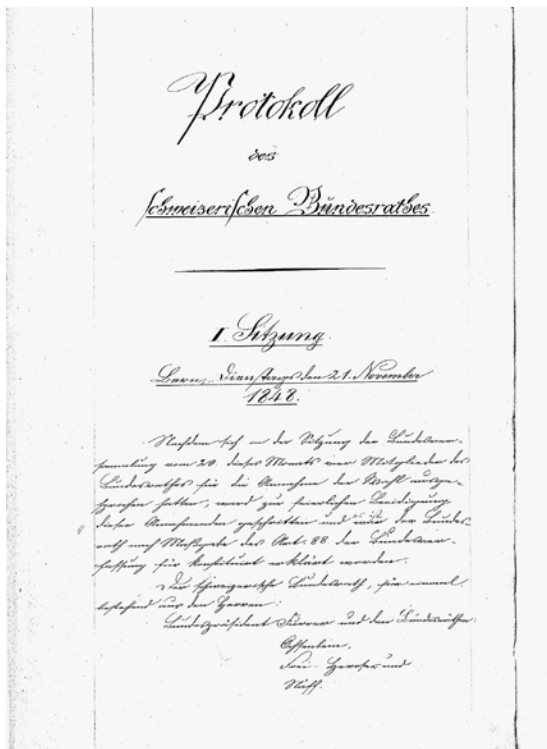 Protokoll
des
schweizerischen Bundesrathes.
I. Sitzung.
Bern, Dienstags den 21. November
1848.
Nachdem sich in der Sitzung der Bundesver-
sammlung vom 20. dieses Monats vier Mitglieder des
Bundesrathes für die Annahme der Wahl ausge-
sprochen hatten, wird zur feierlichen Beeidigung
dieser Annehmenden geschritten und der Bundes
rath nach Maßgabe des Art. 88 der Bundesver-
fassung für konstituirt erklärt worden.
Der schweizerische Bundesrath, für einmal
bestehend aus den Herren:
Bundespräsident Furrer und den Bundesräthen:
Ochsenbein,
Frei-Herosee und
Näff.